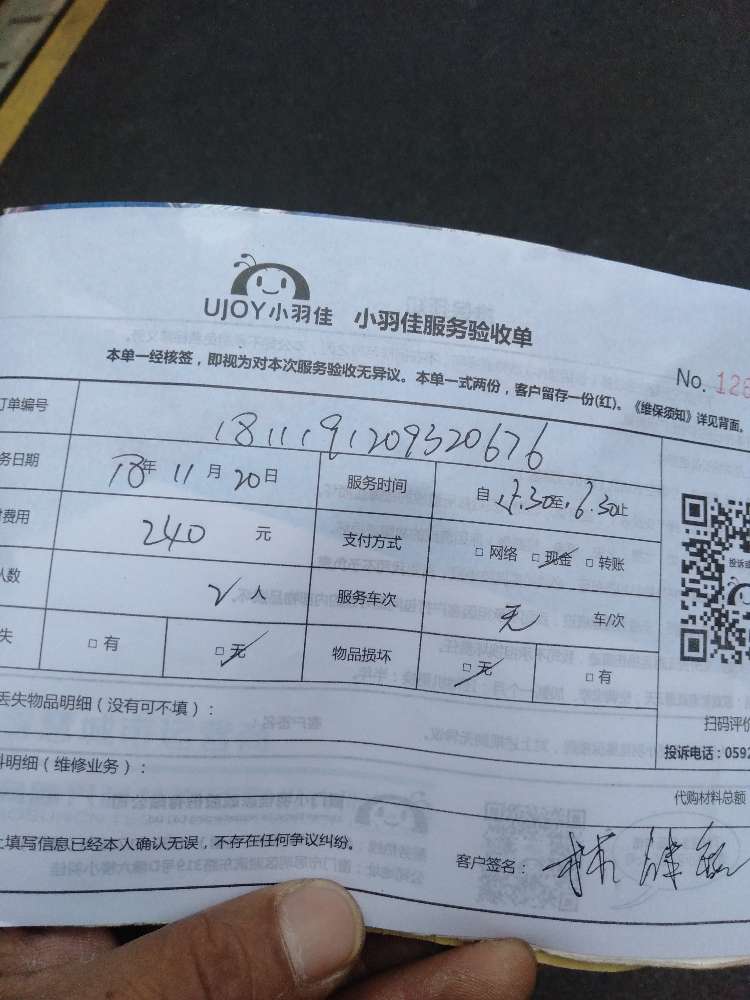 UJOY小羽佳 小羽佳服务验收单
本单一经核签，即视为对本次服务验收无异议。本单一式两份，客户留存一份(红)。《维保须知》详见背面。
No. 128
订单编号 1811191209320676
务日期 18年 11月 20日 服务时间 自 15.30至 16.30止
费用 240 元 支付方式 □ 网络 □ 现金 □ 转账
人数 2 人 服务车次 无 车/次
失 □ 有 □ 无 物品损坏 □ 无 □ 有
丢失物品明细（没有可不填）：
扫码评价
投诉电话：0592
料明细（维修业务）：
代购材料总额
上填写信息已经本人确认无误，不存在任何争议纠纷。
客户签名：